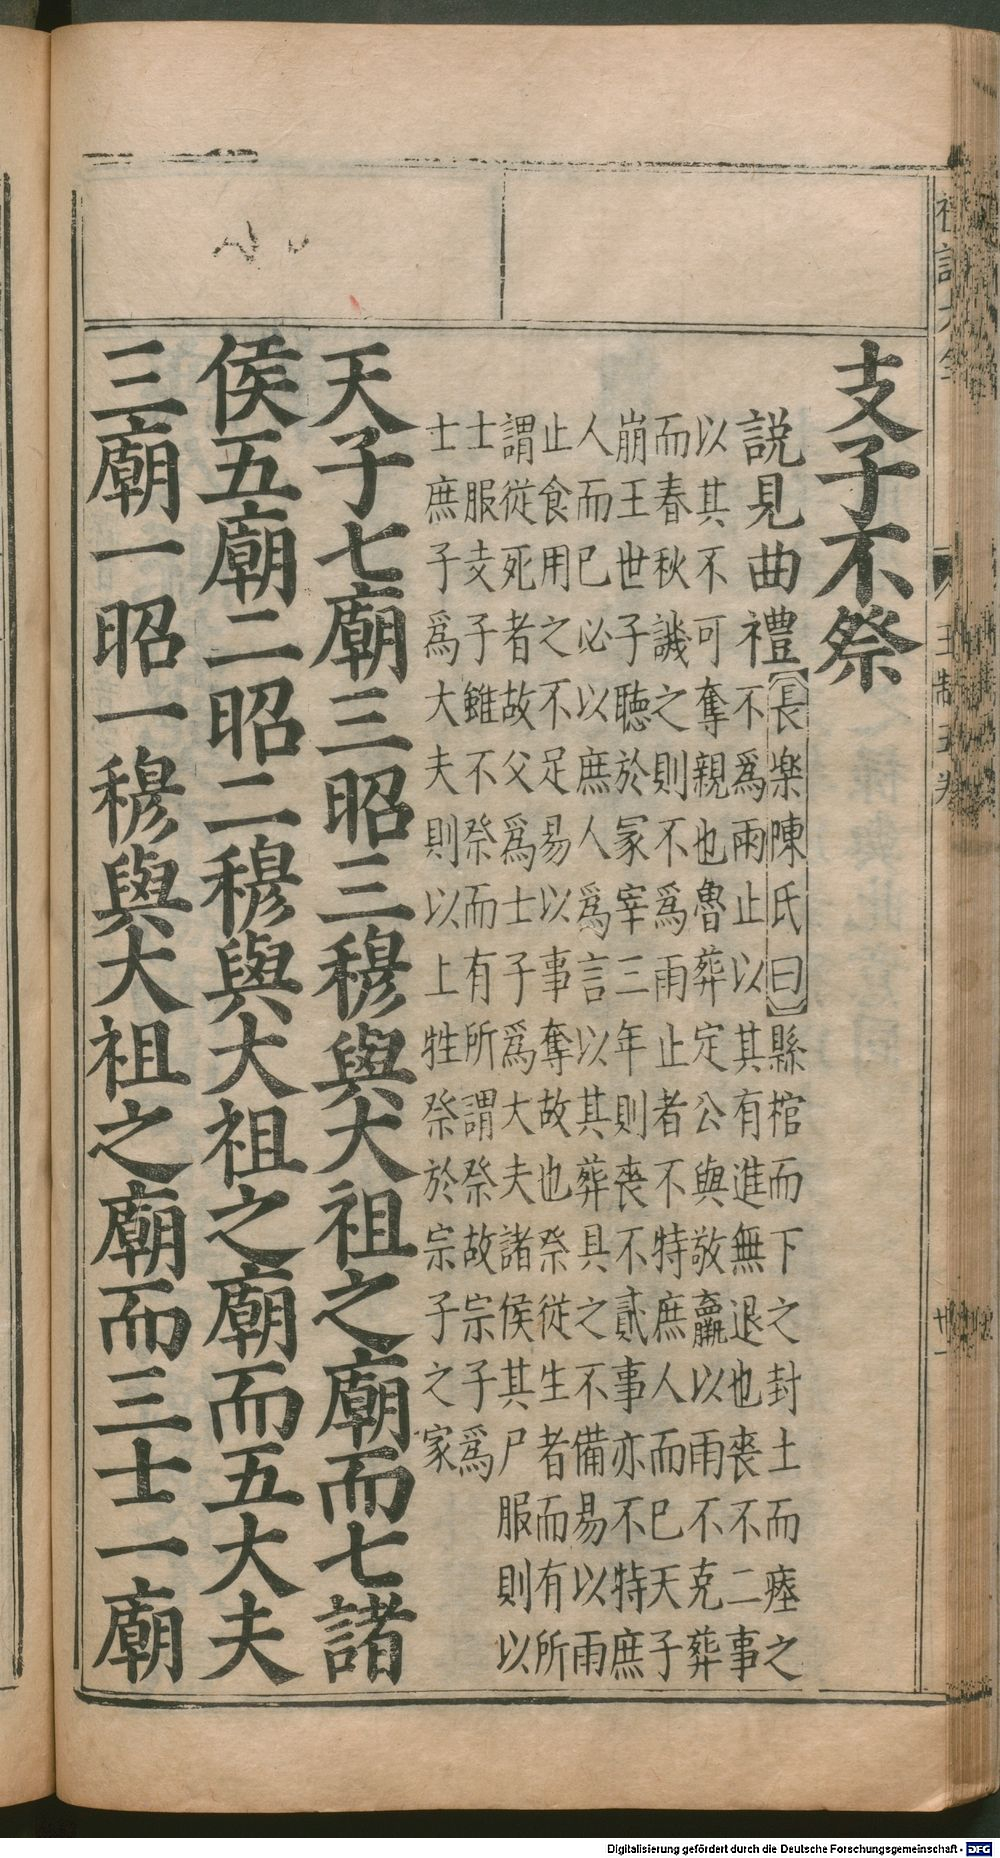 支子不祭
説見曲禮
【長樂陳氏曰】縣棺而下之封土而瘞之
不爲雨止以其有進無退也喪不二事
以其不可奪親也魯葬定公與敬嬴以雨不克葬
而春秋譏之則不爲雨止者不特庶人而已天子
崩王世子聽於冢宰三年則喪不貳事亦不特庶
人而已必以庶人爲言以其葬具之不備易以雨
止食用之不足易以事奪故也祭從生者而有所
謂從死者故父爲士子爲大夫諸侯其尸服則以
士服支子雖不祭而有所謂祭故宗子爲
士庶子爲大夫則以上牲祭於宗子之家
天子七廟三昭三穆與大祖之廟而七諸
侯五廟二昭二穆與大祖之廟而五大夫
三廟一昭一穆與大祖之廟而三士一廟
Digitalisierung gefördert durch die Deutsche Forschungsgemeinschaft - DFG